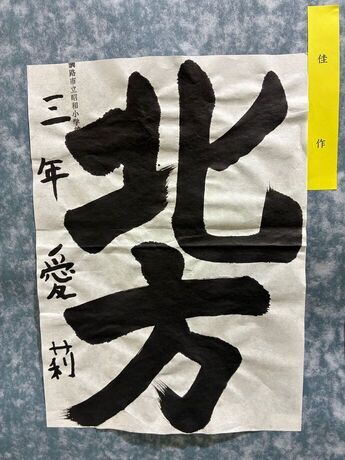 佳作
北方
釧路市立昭和小学校
三年 愛莉